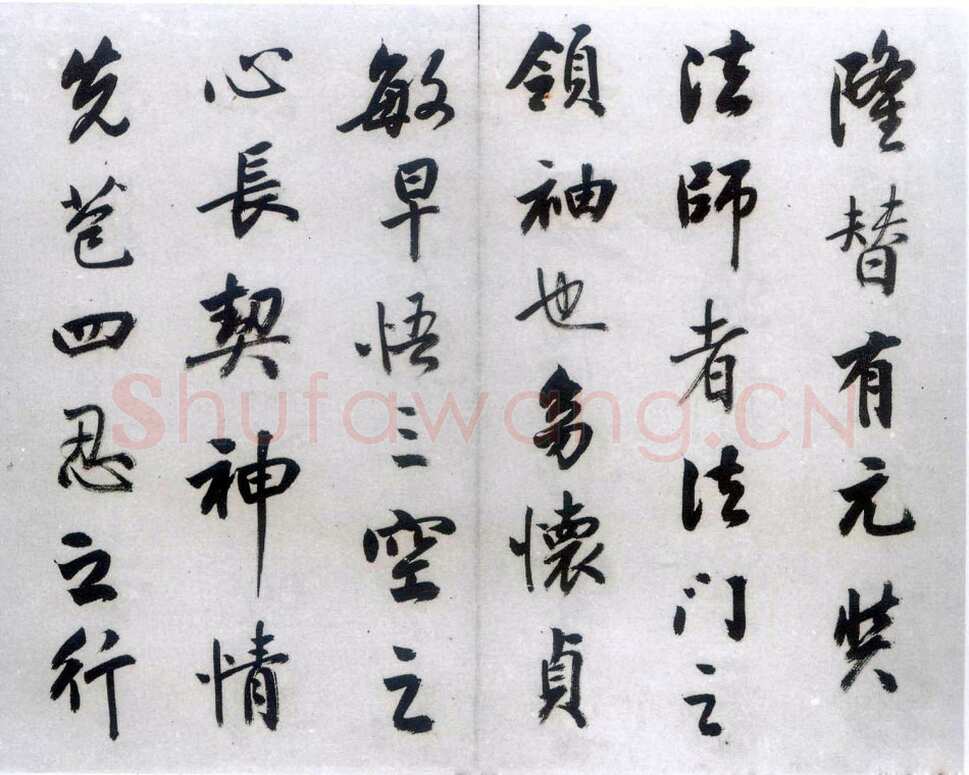 隆替有元奘
法師者法门之
領袖也幼懷貞
敏早悟三空之
心長契神情
先苞四忍之行
Shufawang.CN